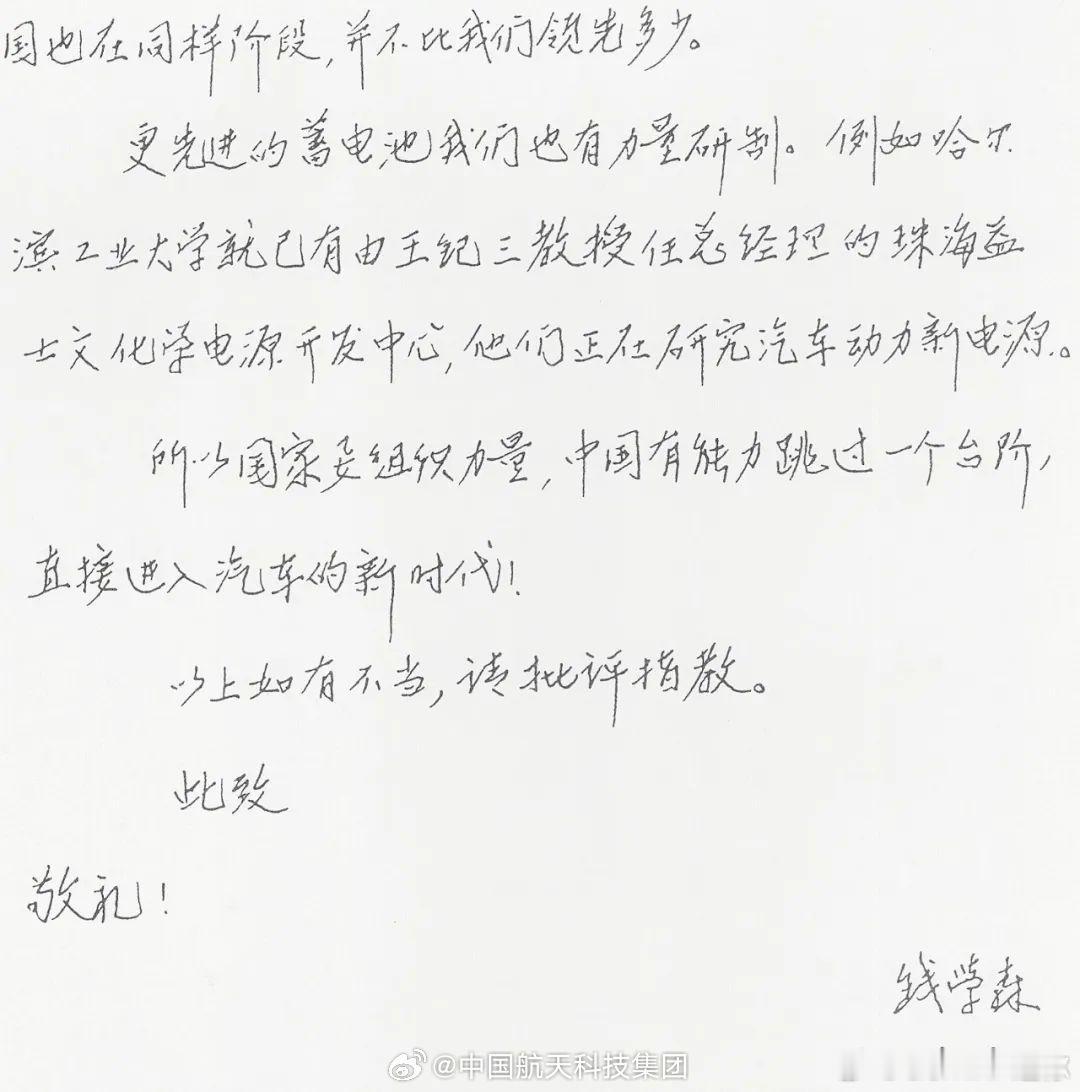 国也在同样阶段，并不比我们领先多少。
更先进的蓄电池我们也有力量研制。例如哈尔
滨工业大学就已有由王纪三教授任总经理的珠海益
士文化学电源开发中心，他们正在研究汽车动力新电源。
所以国家要组织力量，中国有能力跳过一个台阶，
直接进入汽车的新时代！
以上如有不当，请批评指教。
此致
敬礼！
钱学森
@中国航天科技集团